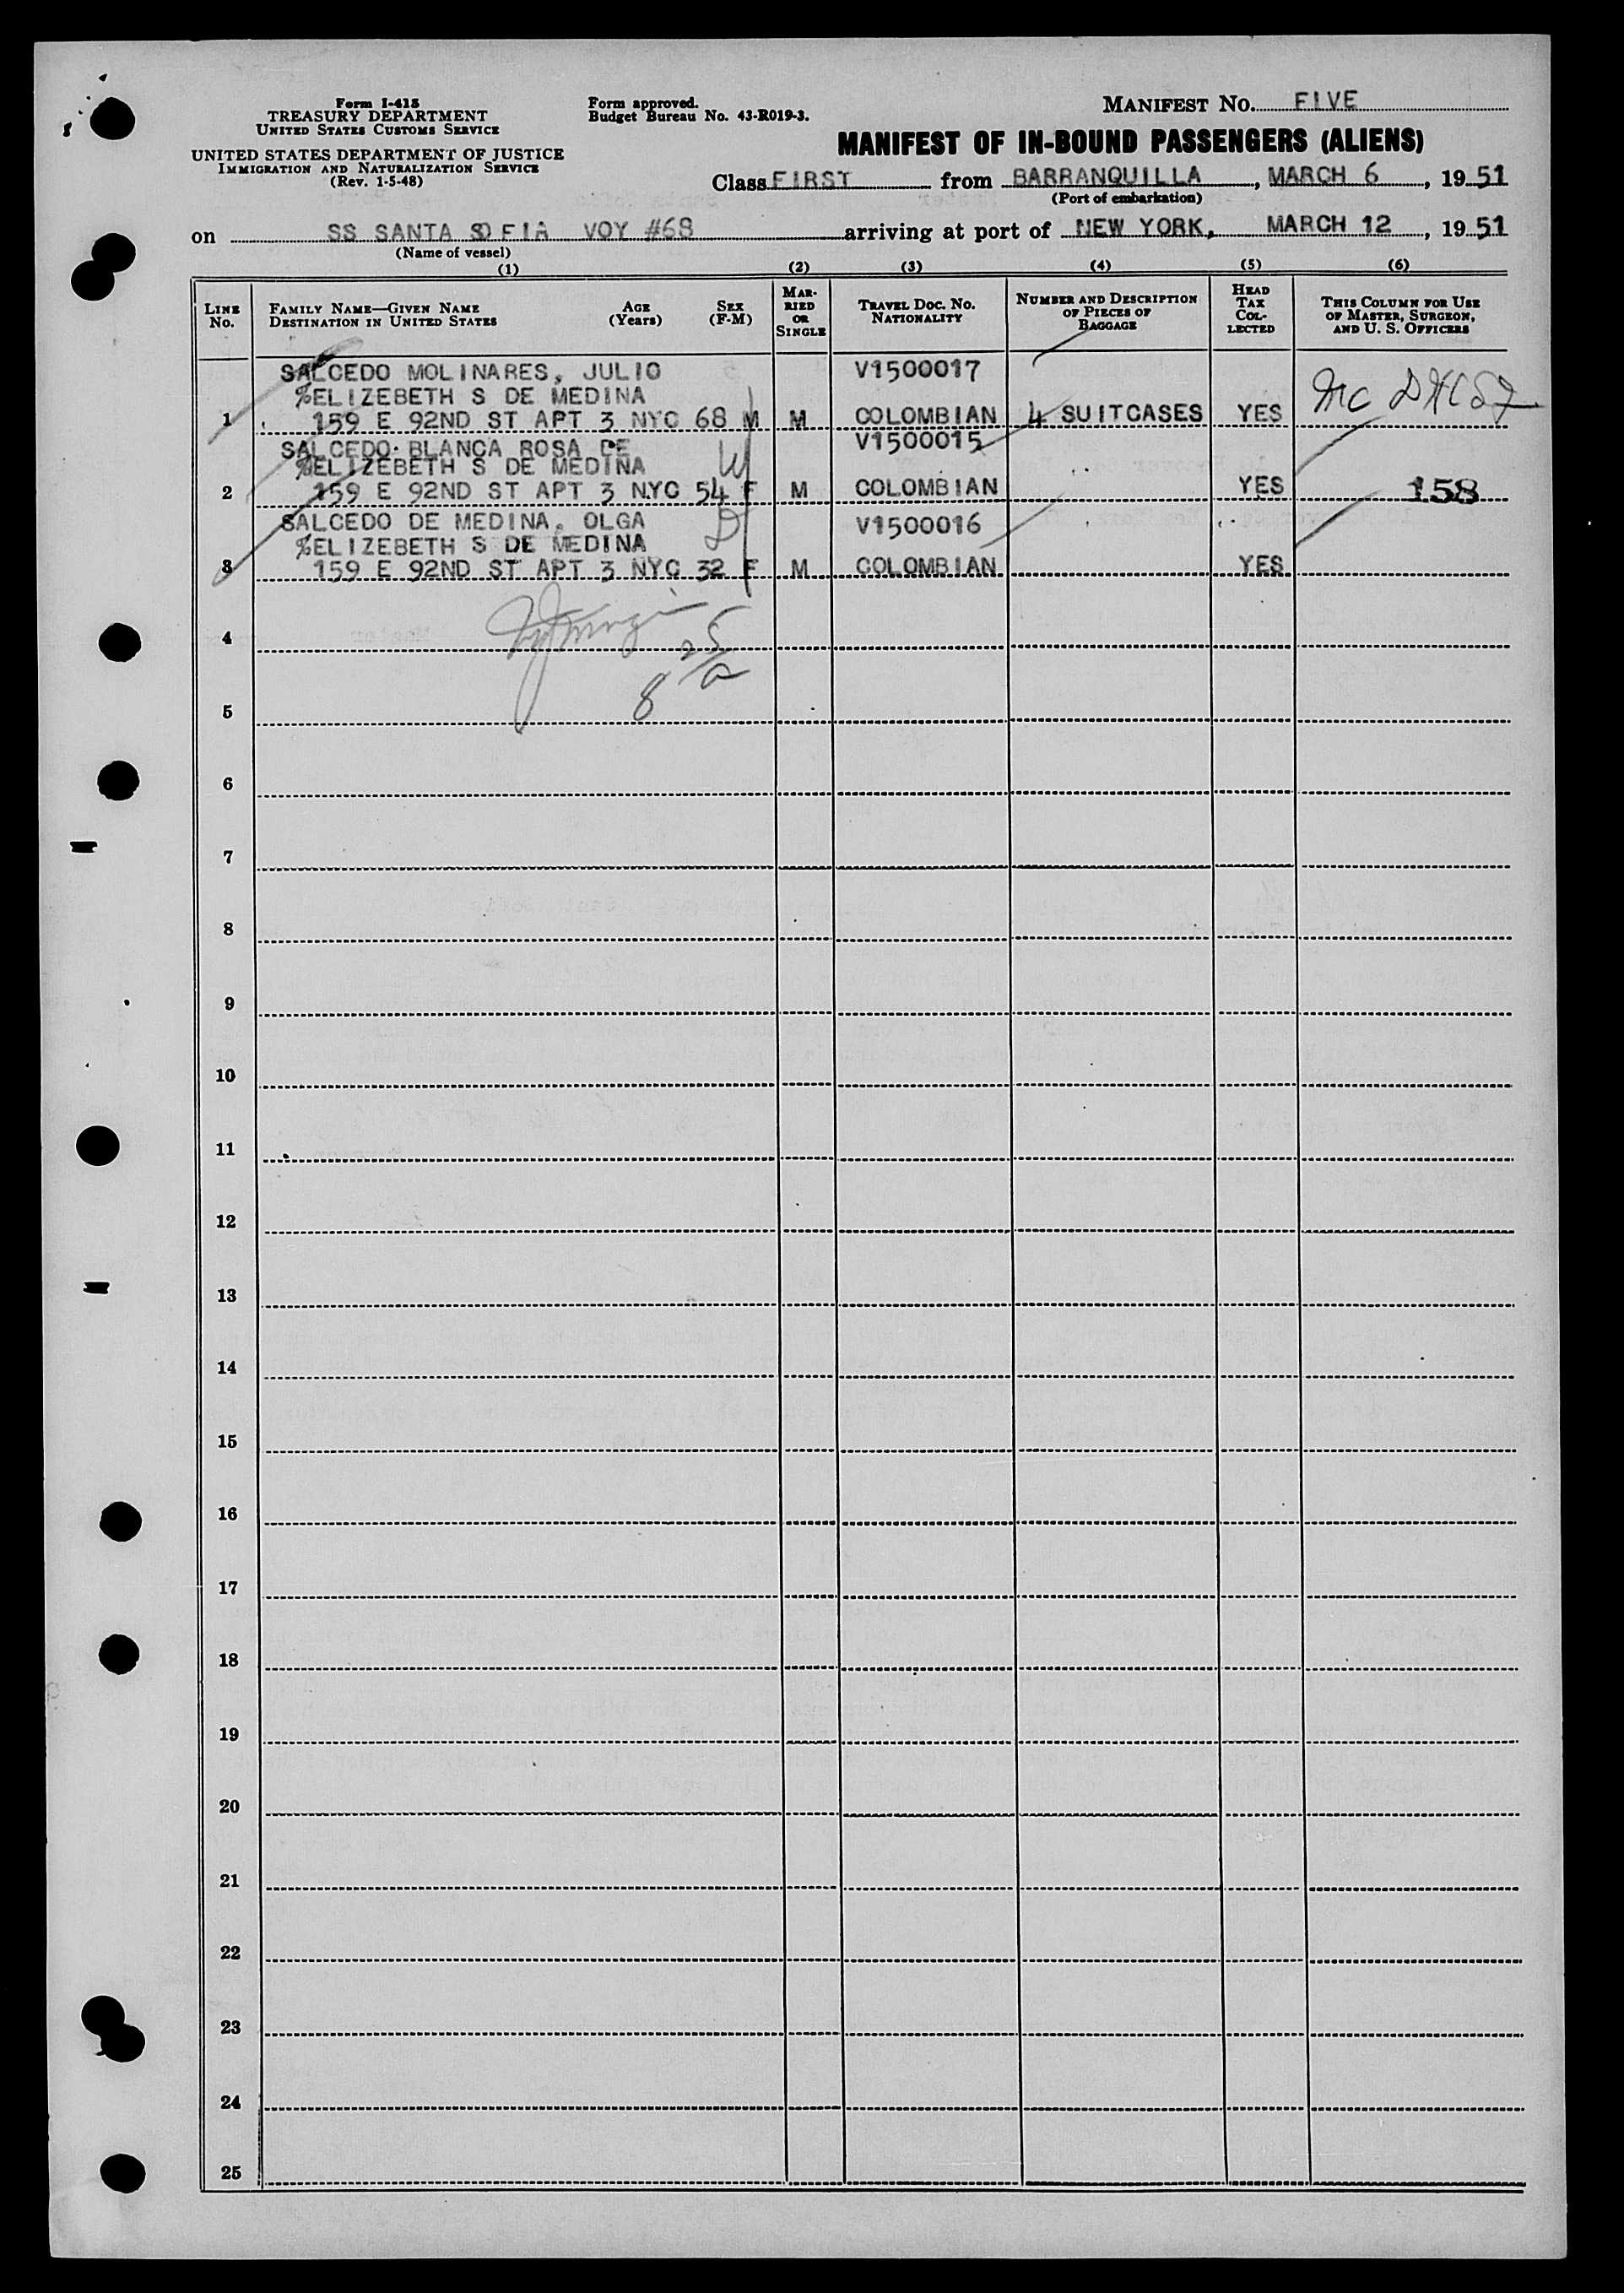 Form I-415
TREASURY DEPARTMENT
UNITED STATES CUSTOMS SERVICE
UNITED STATES DEPARTMENT OF JUSTICE
IMMIGRATION AND NATURALIZATION SERVICE
(Rev. 1-5-48)
Form approved.
Budget Bureau No. 43-R019-3.
MANIFEST NO. FIVE
MANIFEST OF IN-BOUND PASSENGERS (ALIENS)
Class FIRST from BARRANQUILLA, MARCH 6, 1951
(Port of embarkation)
on SS SANTA SOFIA VOY #68 arriving at port of NEW YORK, MARCH 12, 1951
(Name of vessel)
(1) (2) (3) (4) (5) (6)
LINE NO.
FAMILY NAME—GIVEN NAME
DESTINATION IN UNITED STATES
AGE (Years)
SEX (F-M)
MARRIED OR SINGLE
TRAVEL DOC. NO.
NATIONALITY
NUMBER AND DESCRIPTION OF PIECES OF BAGGAGE
HEAD TAX COLLECTED
THIS COLUMN FOR USE OF MASTER, SURGEON, AND U. S. OFFICERS
SALCEDO MOLINARES, JULIO V1500017
%ELIZEBETH S DE MEDINA
1 159 E 92ND ST APT 3 NYC 68 M M COLOMBIAN 4 SUITCASES YES
SALCEDO BLANCA ROSA DE V1500015
%ELIZEBETH S DE MEDINA W
2 159 E 92ND ST APT 3 NYC 54 F M COLOMBIAN YES 158
SALCEDO DE MEDINA, OLGA D V1500016
%ELIZEBETH S DE MEDINA
3 159 E 92ND ST APT 3 NYC 32 F M COLOMBIAN YES
4
5
6
7
8
9
10
11
12
13
14
15
16
17
18
19
20
21
22
23
24
25